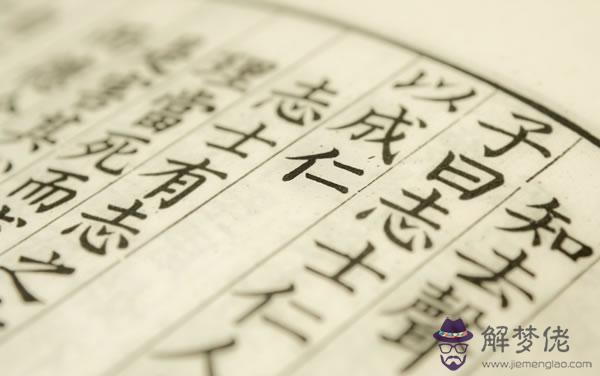 知去聲
子曰志士仁人
以成仁
志士有志之
理當死而
是害其
解梦佬
www.jiemenglao.com